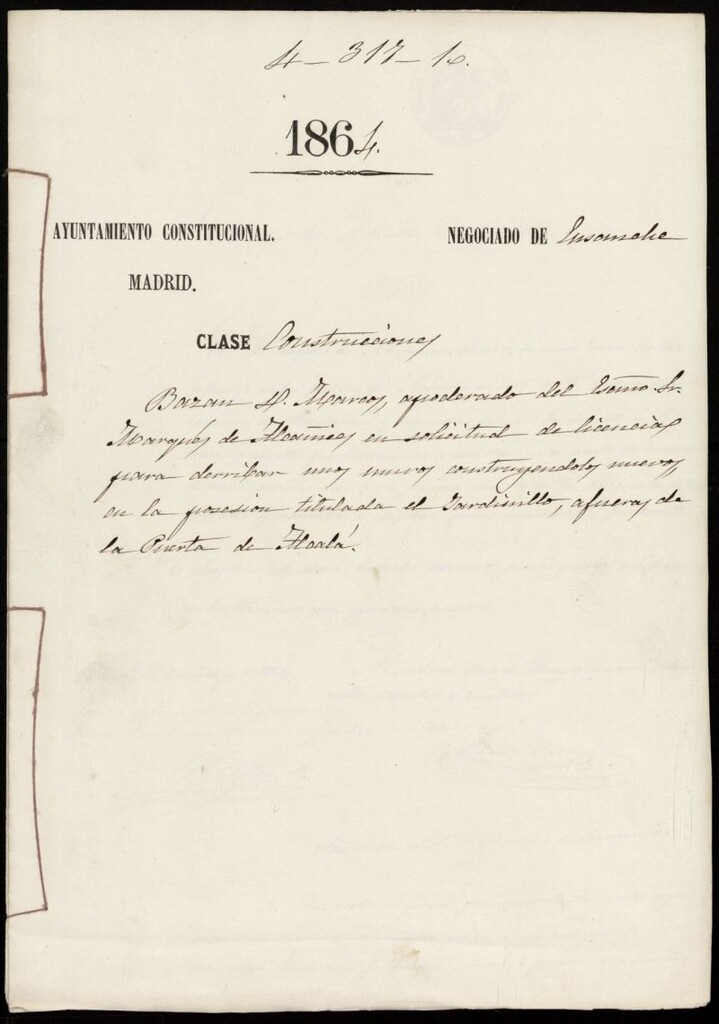 4-317-16.
1864.
AYUNTAMIENTO CONSTITUCIONAL.
MADRID.
NEGOCIADO DE Ensanche
CLASE Construcciones
Bazan D. Marcos, apoderado del Exmo. Sr.
Marqués de Alcañices en solicitud de licencias
para derribar unos muros construyendolos nuevos,
en la posesion titulada el Jardinillo, afueras de
la Puerta de Alcalá.